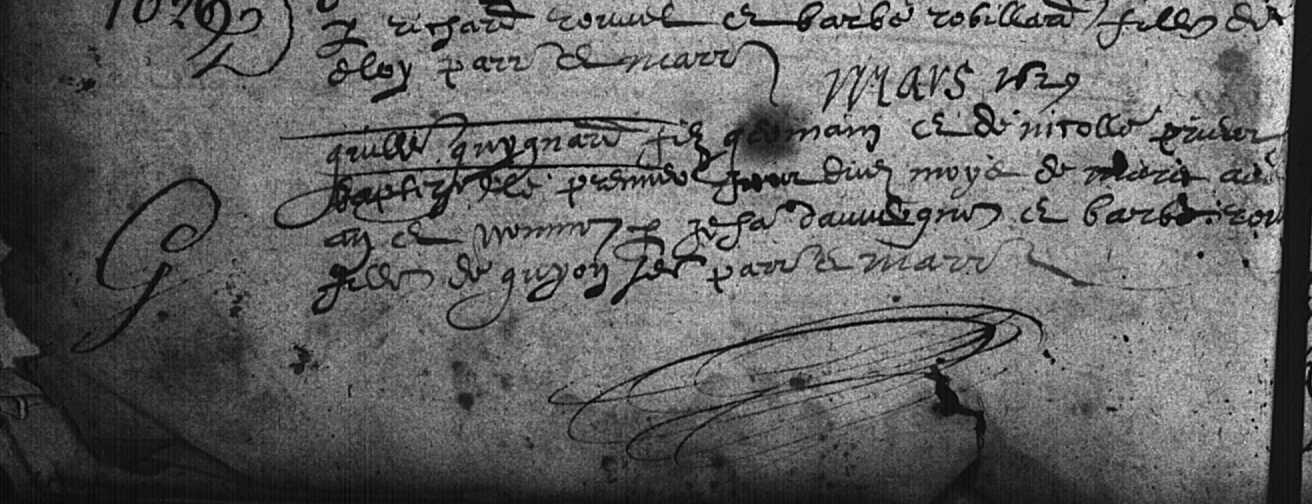 1629
p richard rouuel et barbe robillard fille de
eloy parr et marr
Mars 1629
guille guygnard fiz germain et de nicolle
baptizé le premier jour du moys de mars aud
an et nommé p jeha dauuergne et barbe
fille de guyon parr et marr
G